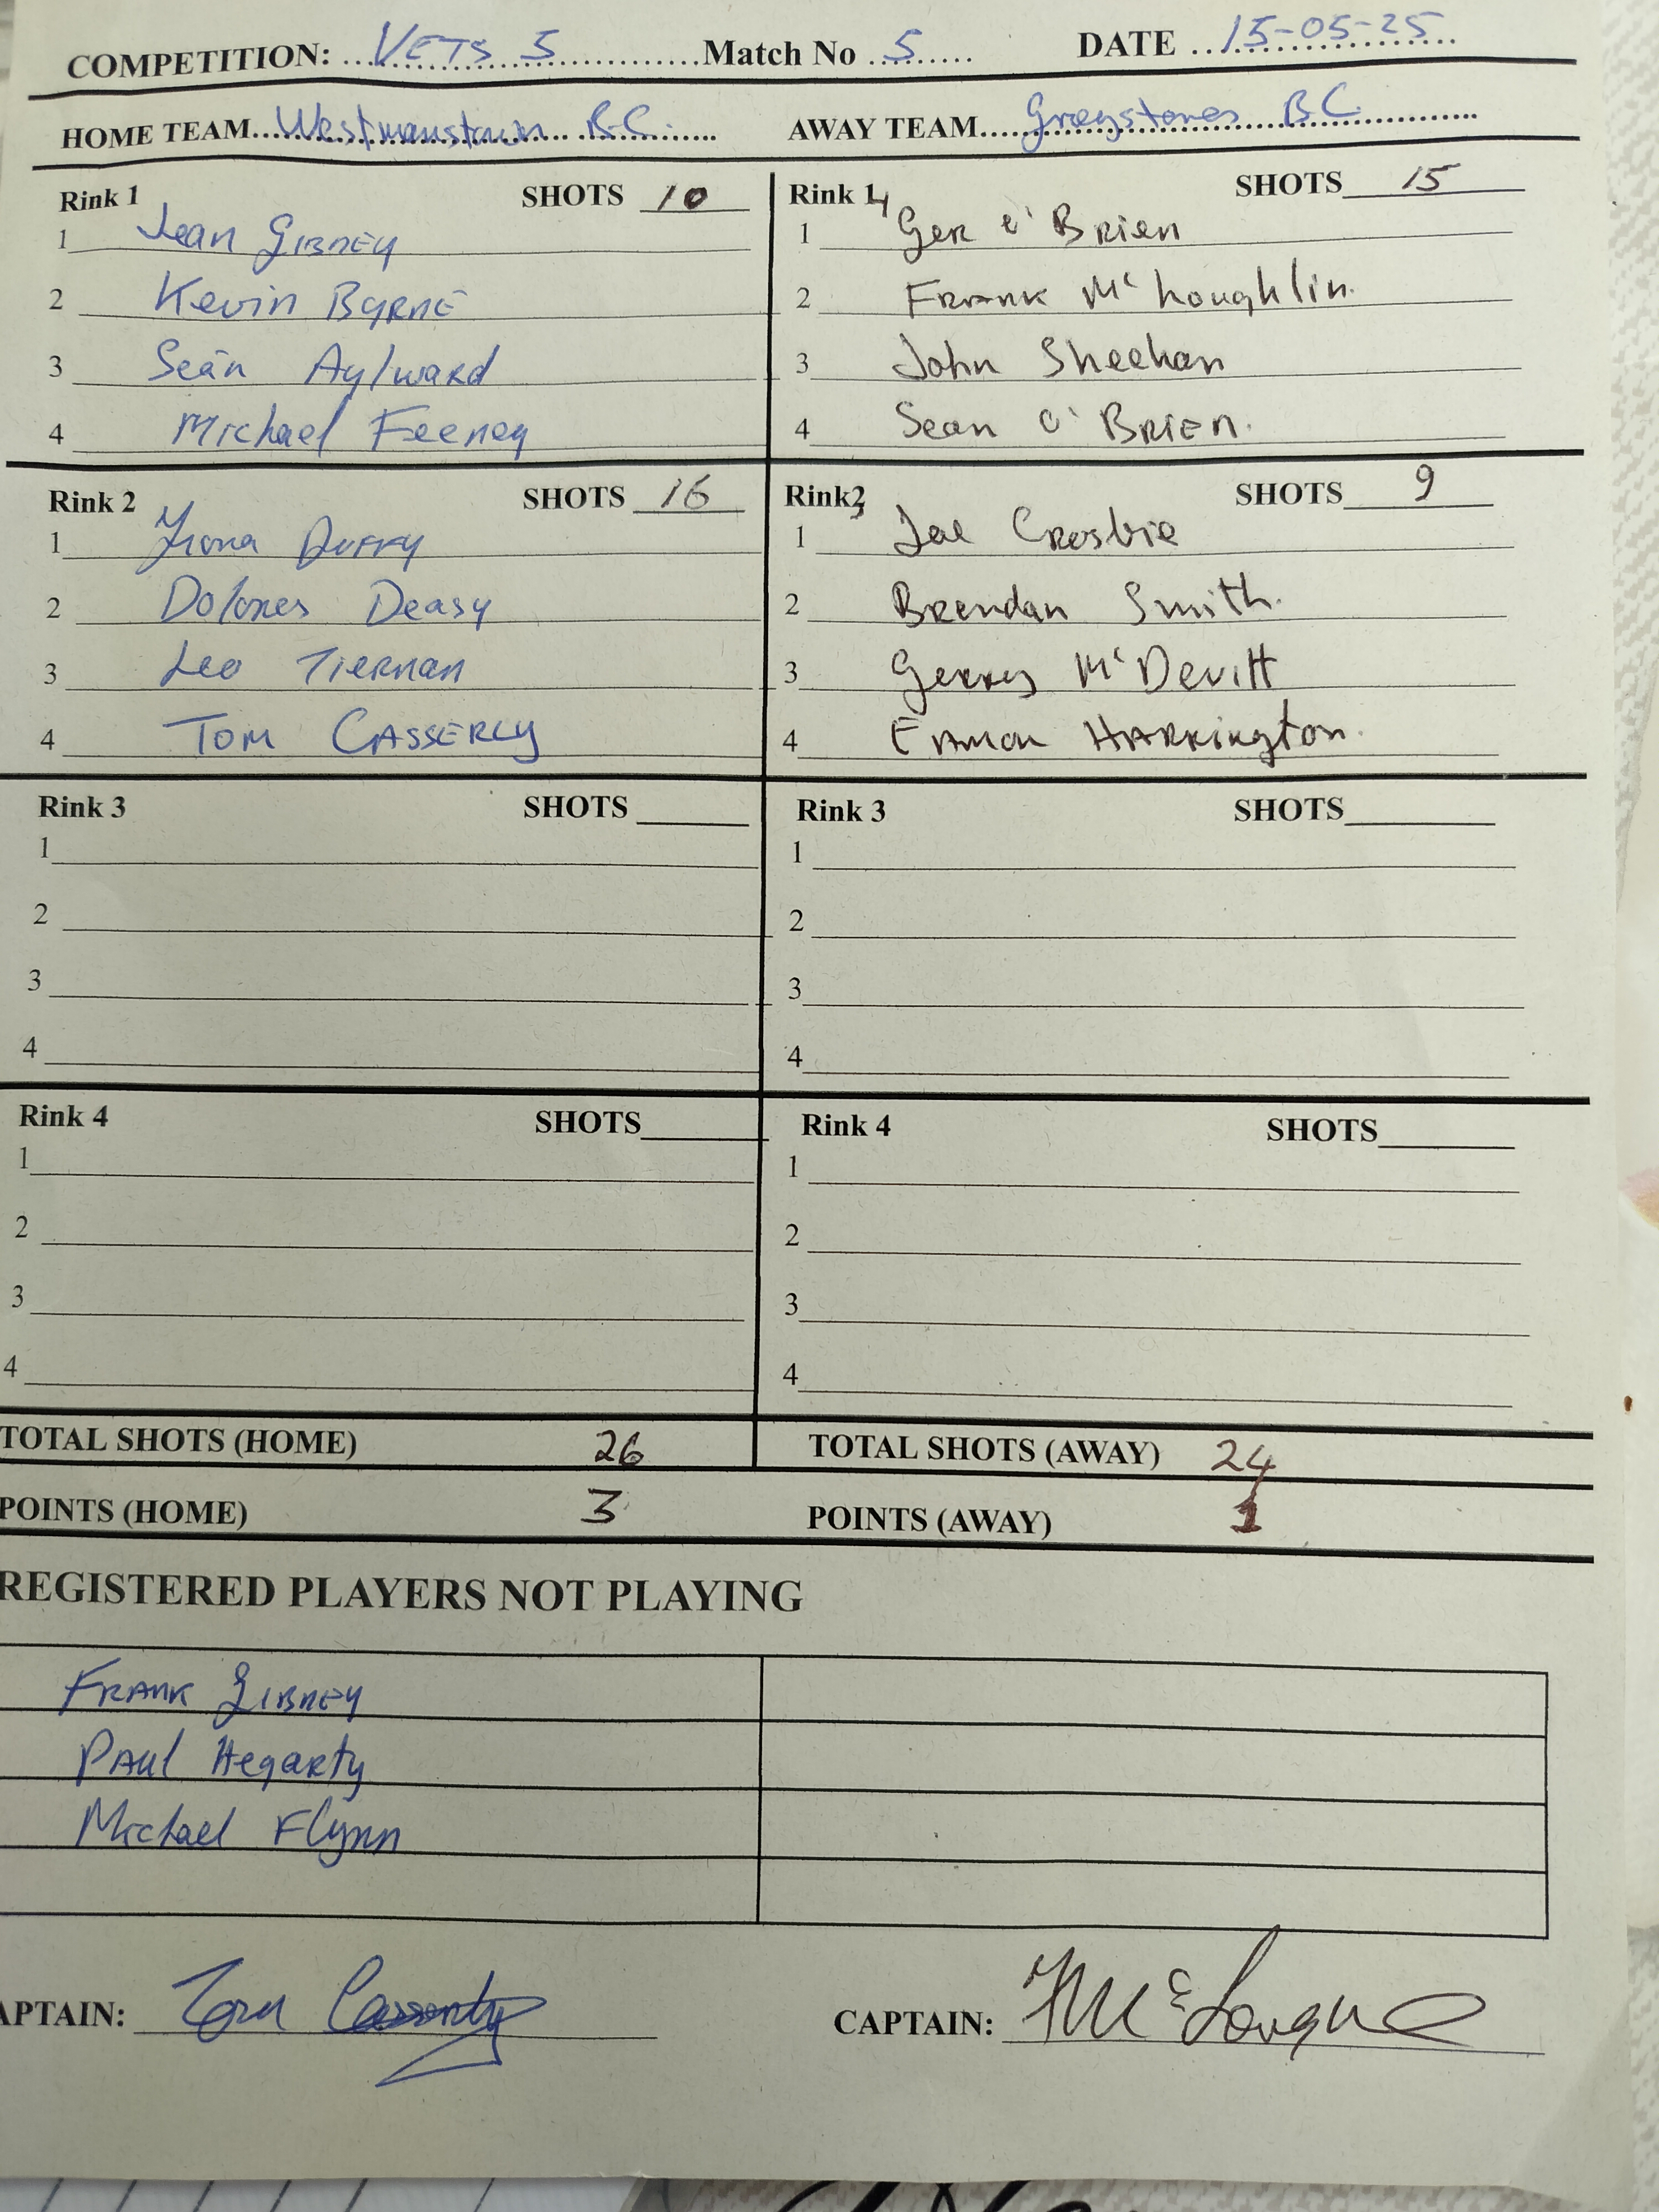 COMPETITION: VETS 5 Match No 5 DATE 15-05-25
HOME TEAM Westmanstown B.C. AWAY TEAM Greystones B.C.
Rink 1 SHOTS 10
1 Jean Gibney
2 Kevin Byrne
3 Seán Aylward
4 Michael Feeney
Rink 1 4 SHOTS 15
1 Ger O' Brien
2 Frank Mc Loughlin.
3 John Sheehan
4 Sean O' Brien.
Rink 2 SHOTS 16
1 Fiona Duffy
2 Dolores Deasy
3 Leo Tiernan
4 Tom Casserly
Rink 2 3 SHOTS 9
1 Joe Crosbie
2 Brendan Smith.
3 Gerry Mc Devitt
4 Eamon Harrington.
Rink 3 SHOTS
1
2
3
4
Rink 3 SHOTS
1
2
3
4
Rink 4 SHOTS
1
2
3
4
Rink 4 SHOTS
1
2
3
4
TOTAL SHOTS (HOME) 26 TOTAL SHOTS (AWAY) 24
POINTS (HOME) 3 POINTS (AWAY) 1
REGISTERED PLAYERS NOT PLAYING
Frank Gibney
Paul Hegarty
Michael Flynn
APTAIN: Tom Casserly CAPTAIN: